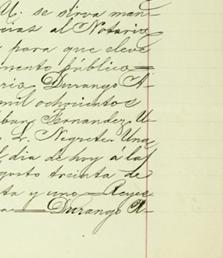 U. se sirva man
cias al Notario
para que eleve
mento público—
rio, Durango A-
mil ochocientos
ban Fernandez, U
L. Negrete. Una
l dia de hoy á las
gosto treinta de
ta y uno—Reyes
a—Durango A-